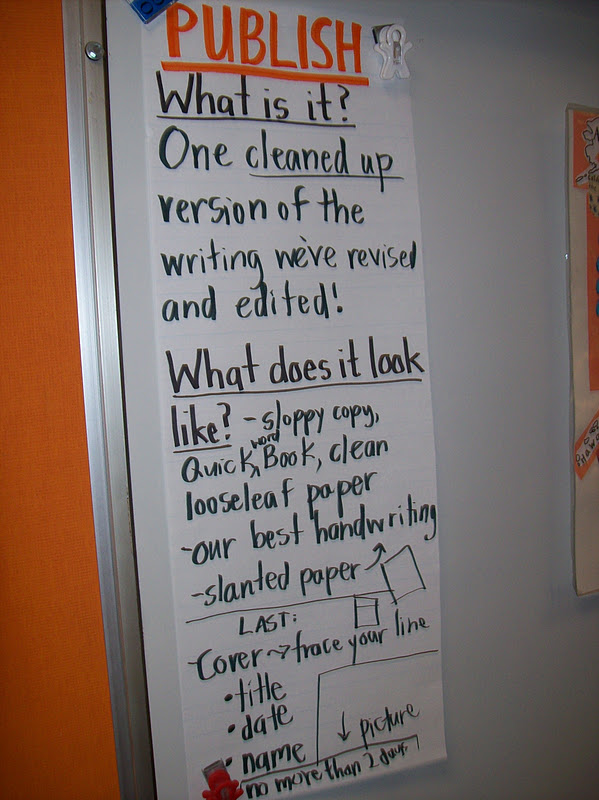 PUBLISH
What is it?
One cleaned up
version of the
writing we've revised
and edited!
What does it look
like? - sloppy copy,
Quick word Book, clean
looseleaf paper
-our best handwriting
-slanted paper
LAST:
Cover → trace your line
• title
• date
• name
↓ picture
no more than 2 days